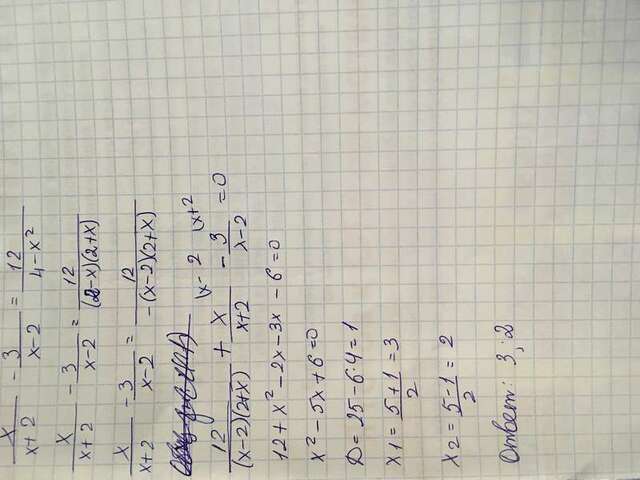 x/(x+2) - 3/(x-2) = 12/(4-x²)
x/(x+2) - 3/(x-2) = 12/((2-x)(2+x))
x/(x+2) - 3/(x-2) = 12/(-(x-2)(2+x))
(x-2 (x+2
12/((x-2)(2+x)) + x/(x+2) - 3/(x-2) = 0
12+x²-2x-3x-6=0
x²-5x+6=0
D=25-6·4=1
x1=(5+1)/2=3
x2=(5-1)/2=2
Ответ: 3; 2